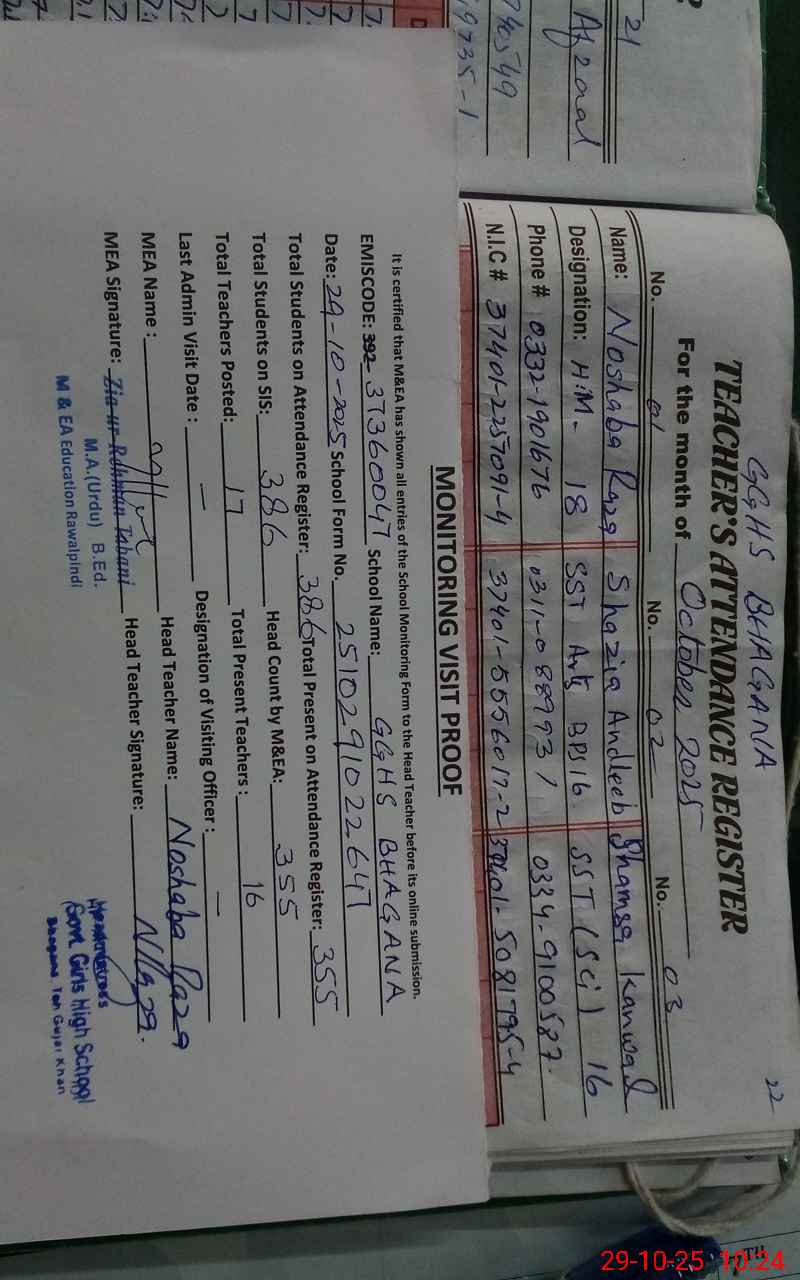 GGHS BHAGANA
22
TEACHER'S ATTENDANCE REGISTER
For the month of October 2025
No. 01 No. 02 No. 03
Name: Noshaba Raza Shazia Andleeb Shamsa Kanwal
Designation: H.M- 18 SST Arts BPS16. SST (Sci) 16
Phone # 0332-1901676 0311-0889931 0334-9100587.
N.I.C # 37401-2257091-4 37401-5556017-2 37401-5081795-4
21
Afzaal
740549
19735-1
MONITORING VISIT PROOF
It is certified that M&EA has shown all entries of the School Monitoring Form to the Head Teacher before its online submission.
EMISCODE: 392 37360047 School Name: GGHS BHAGANA
Date: 29-10-2025 School Form No. 2510291022647
Total Students on Attendance Register: 386 Total Present on Attendance Register: 355
Total Students on SIS: 386 Head Count by M&EA: 355
Total Teachers Posted: 17 Total Present Teachers: 16
Last Admin Visit Date: — Designation of Visiting Officer: —
MEA Name: Head Teacher Name: Noshaba Raza
MEA Signature: Zia ur Rehman Tabani Head Teacher Signature: NRaza.
M.A.(Urdu) B.Ed.
M & EA Education Rawalpindi
Headmistress
Govt. Girls High School
Bhagana Teh Gujar Khan
29-10-25 10:24